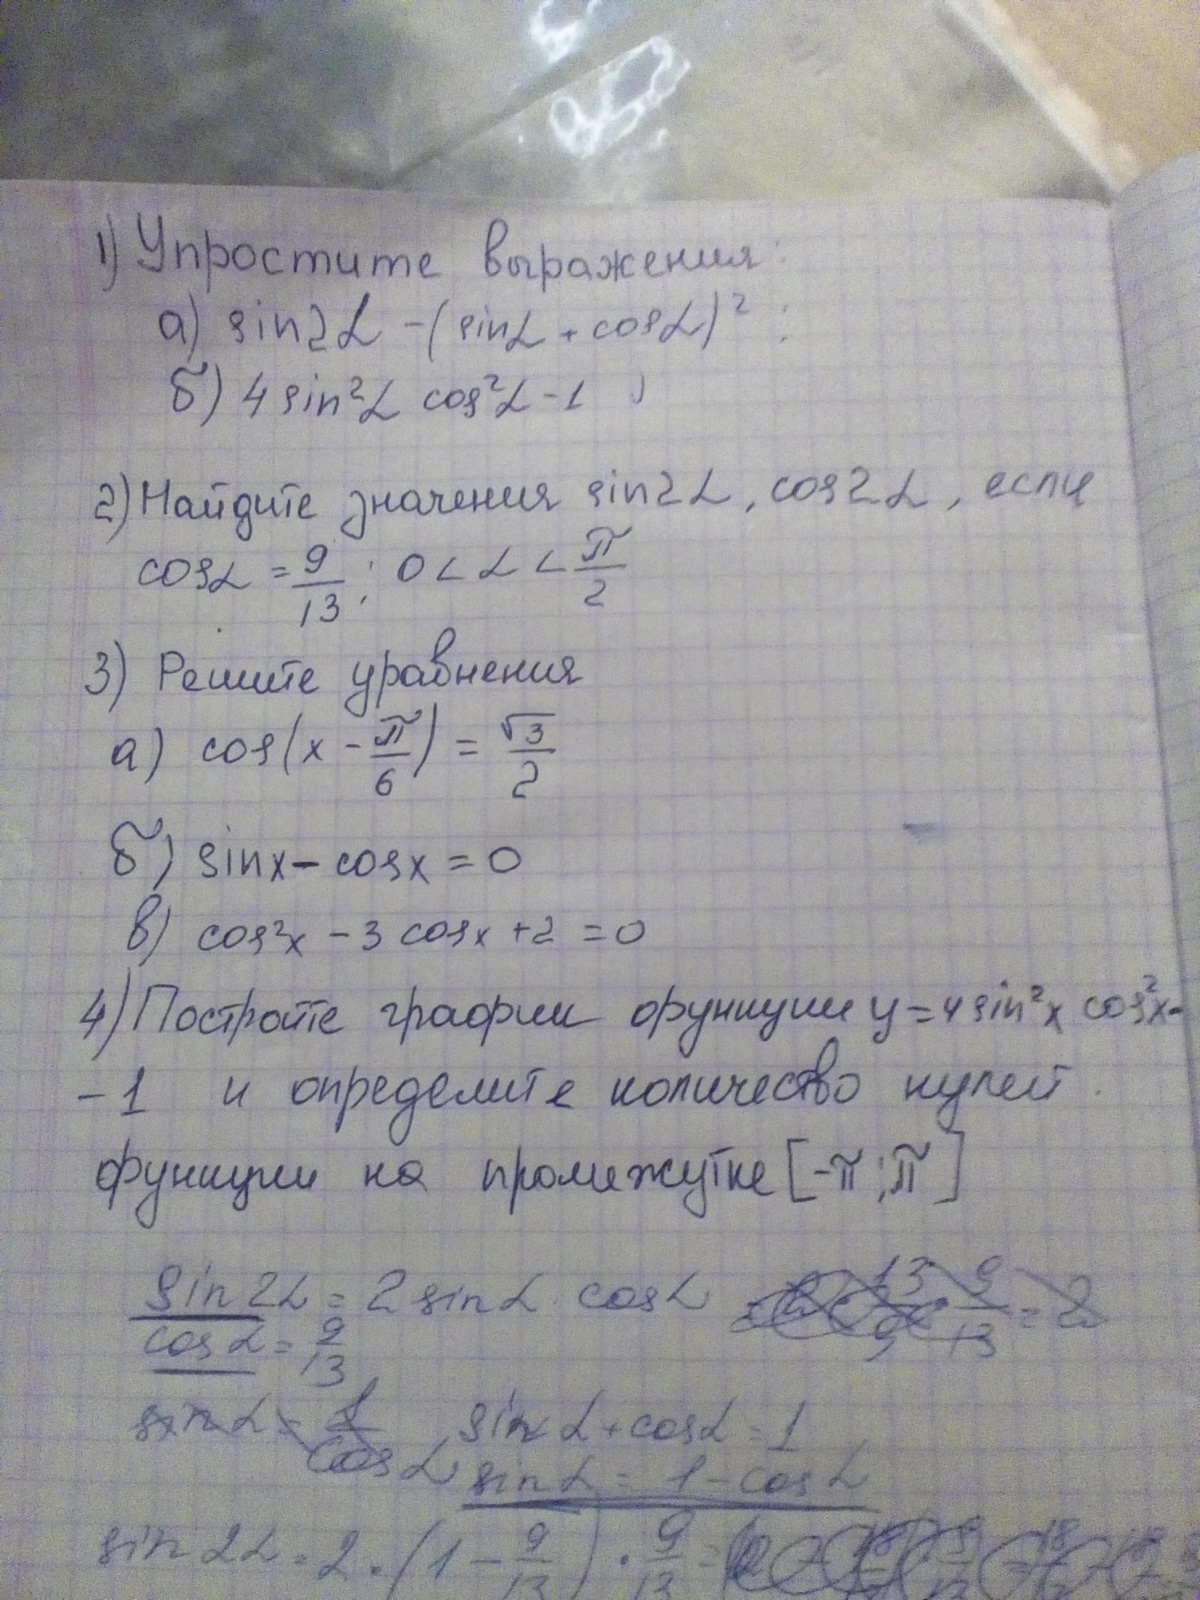 1) Упростите выражения:
а) sin2α - (sinα + cosα)² ;
б) 4 sin²α cos²α - 1
2) Найдите значения sin2α, cos2α, если
cosα = 9/13 ; 0 < α < π/2
3) Решите уравнения
а) cos(x - π/6) = √3/2
б) sinx - cosx = 0
в) cos²x - 3 cosx + 2 = 0
4) Постройте график функции y = 4 sin²x cos²x -
- 1 и определите количество нулей
функции на промижутке [-π; π]
sin2α = 2 sinα · cosα
cosα = 9/13
sinα + cosα = 1
sinα = 1 - cosα
sin2α = 2 · (1 - 9/13) · 9/13 =